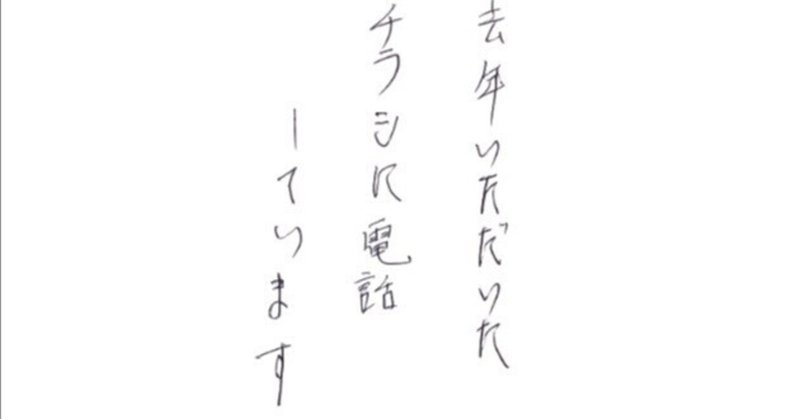 去年いただいた
チラシに電話
しています